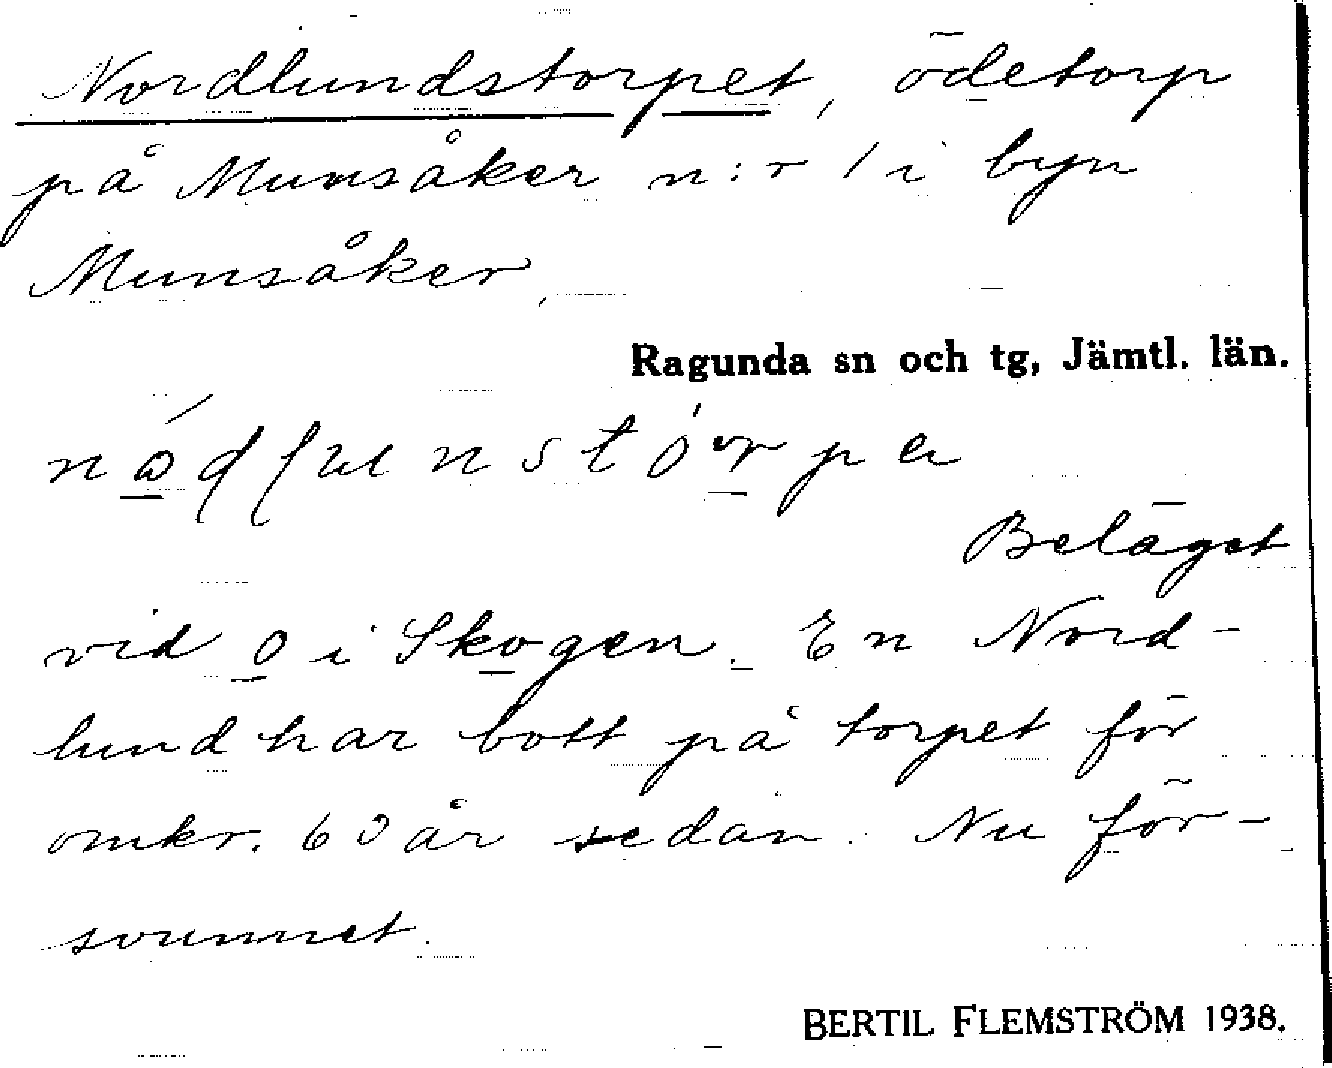 Nordlundstorpet, ödetorp
på Munsåker n:r 1 i byn
Munsåker,
Ragunda sn och tg, Jämtl. län.
Beläget
vid o i Skogen. En Nord-
lund har bott på torpet för
omkr. 60 år sedan. Nu för-
svunnet.
BERTIL FLEMSTRÖM 1938.